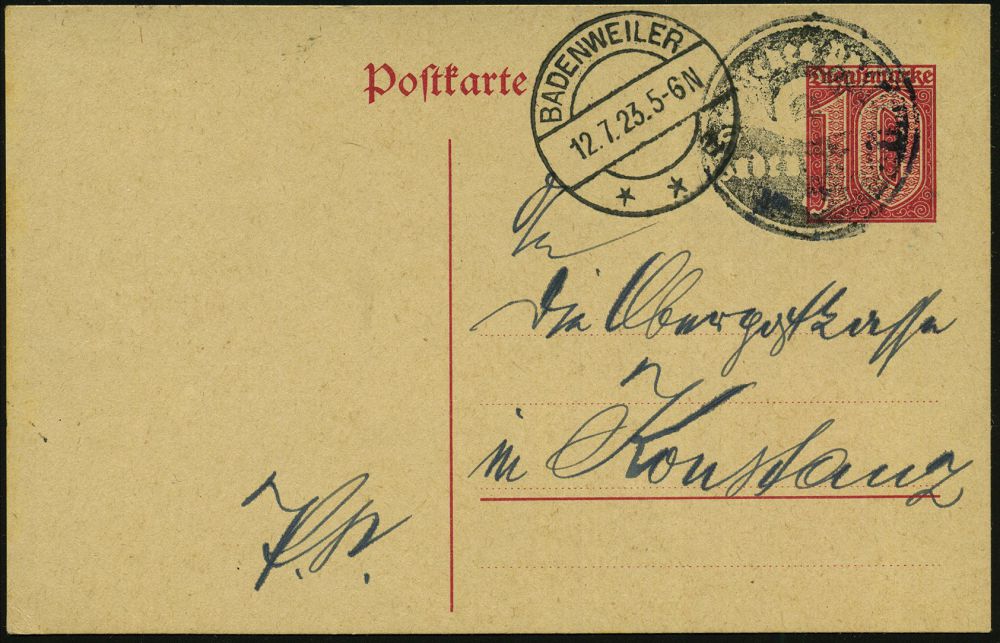 Postkarte
BADENWEILER
12.7.23.5-6N
Dienstmarke
10
An
die Oberpostkasse
in Konstanz